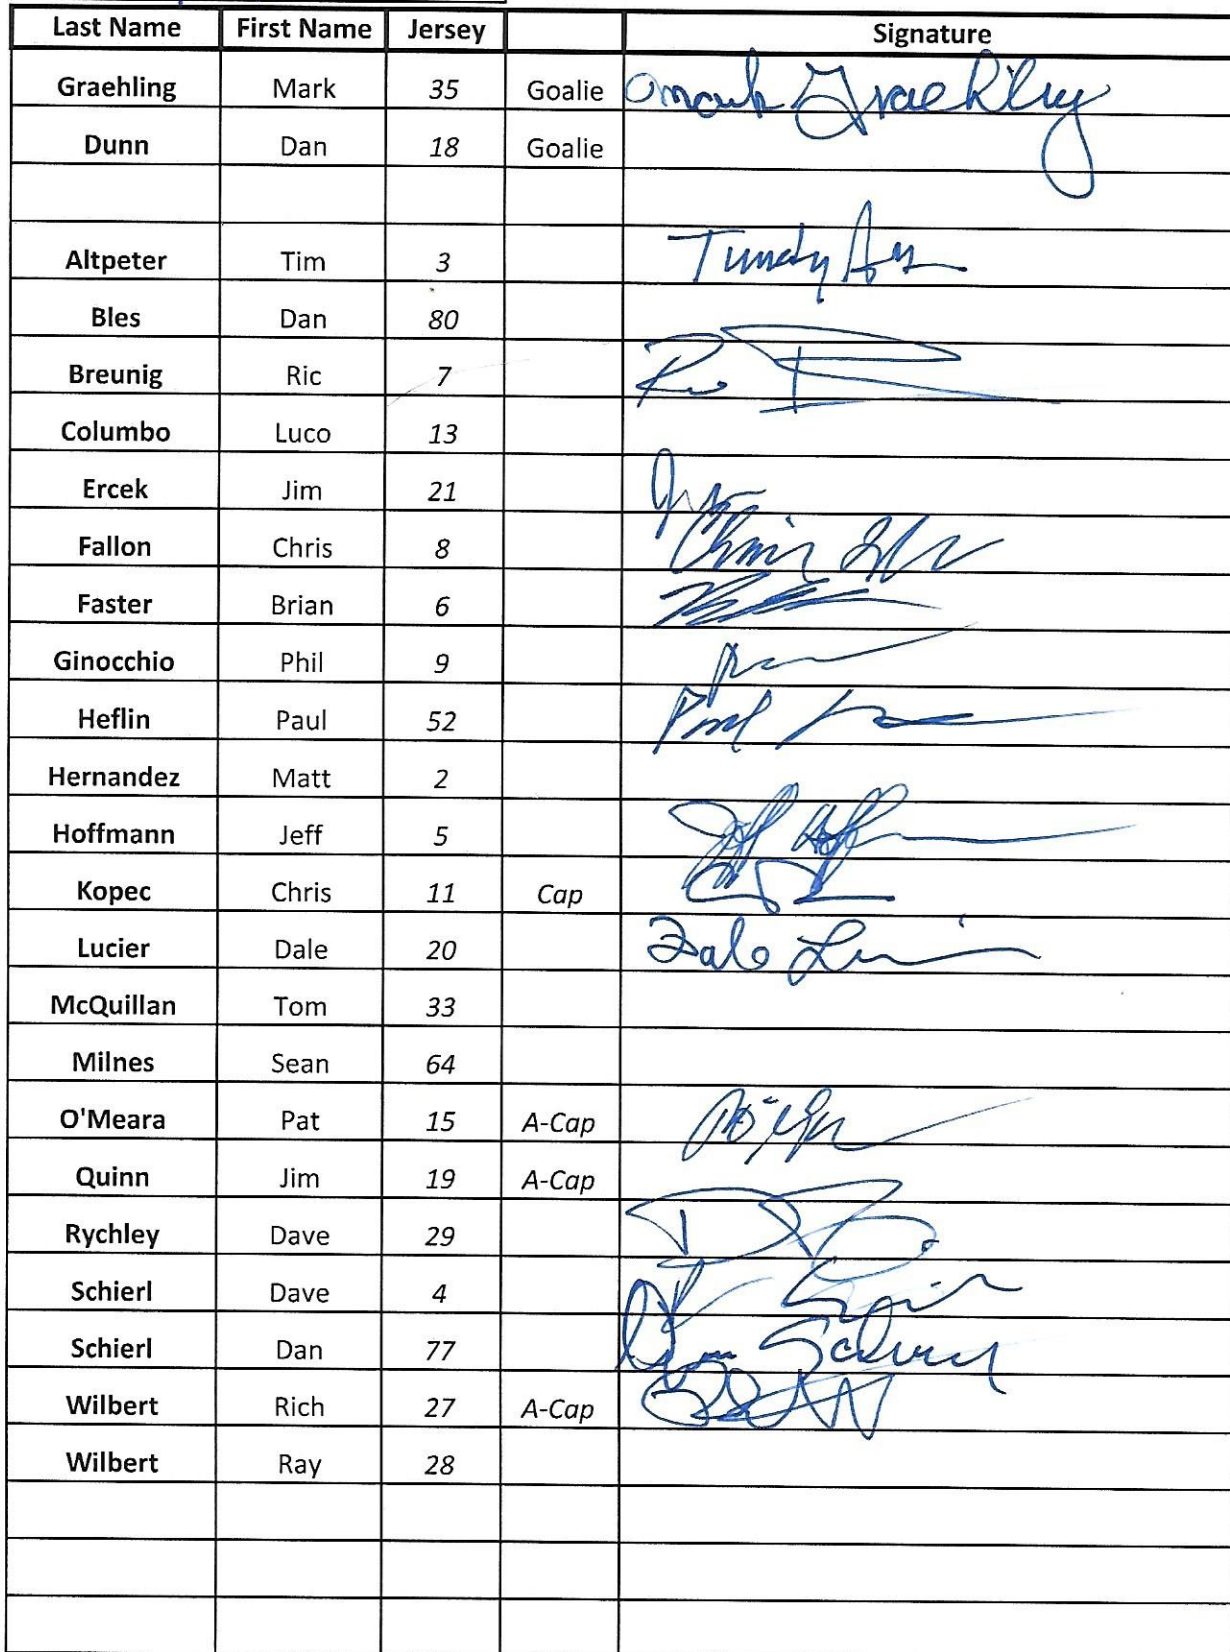 Last Name First Name Jersey Signature
Graehling Mark 35 Goalie Mark Graehling
Dunn Dan 18 Goalie
Altpeter Tim 3
Bles Dan 80
Breunig Ric 7
Columbo Luco 13
Ercek Jim 21
Fallon Chris 8
Faster Brian 6
Ginocchio Phil 9
Heflin Paul 52 Paul
Hernandez Matt 2
Hoffmann Jeff 5 Jeff
Kopec Chris 11 Cap
Lucier Dale 20 Dale
McQuillan Tom 33
Milnes Sean 64
O'Meara Pat 15 A-Cap
Quinn Jim 19 A-Cap
Rychley Dave 29
Schierl Dave 4
Schierl Dan 77
Wilbert Rich 27 A-Cap
Wilbert Ray 28